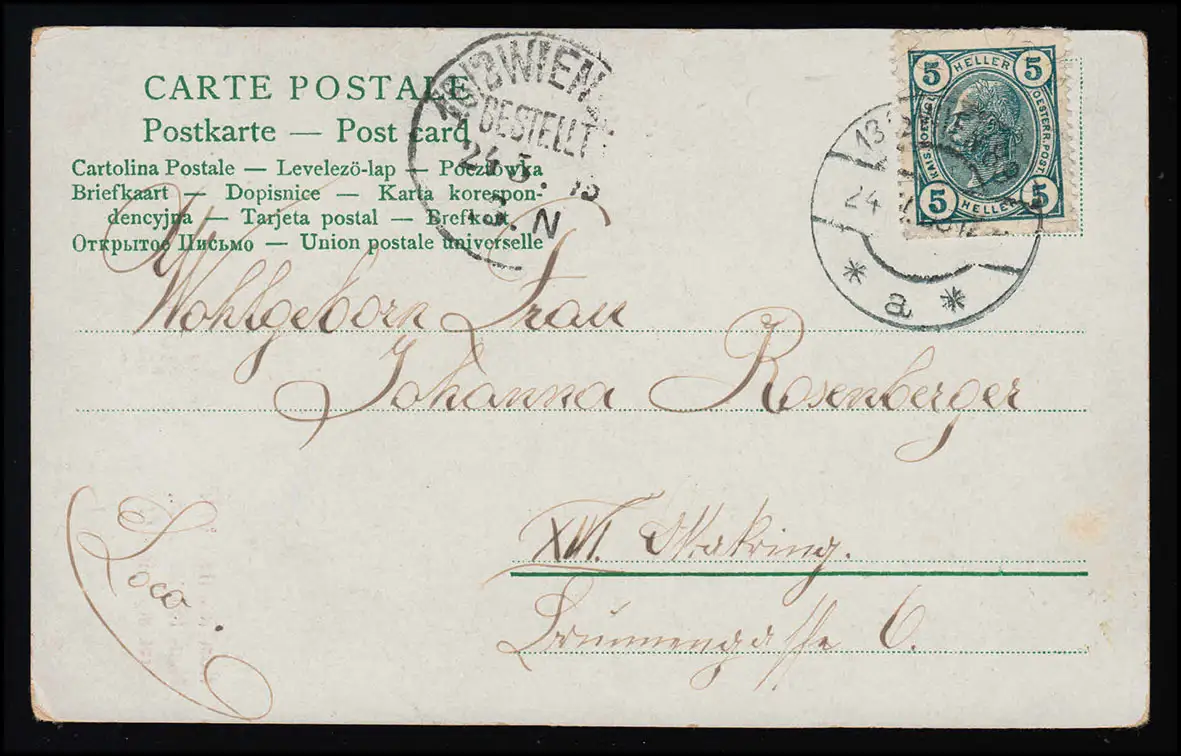 CARTE POSTALE
Postkarte — Post card
Cartolina Postale — Levelezö-lap — Pocztówka
Briefkaart — Dopisnice — Karta korespon-
dencyjna — Tarjeta postal — Brefkort
Открытое Письмо — Union postale universelle
WIEN
BESTELLT
24
3. N
5 HELLER 5
OESTERR. POST
5 HELLER 5
13
24
* a *
Wohlgeborn Frau
Johanna Rosenberger
XVI. Ottakring.
Brunnengasse 6.
Loco.